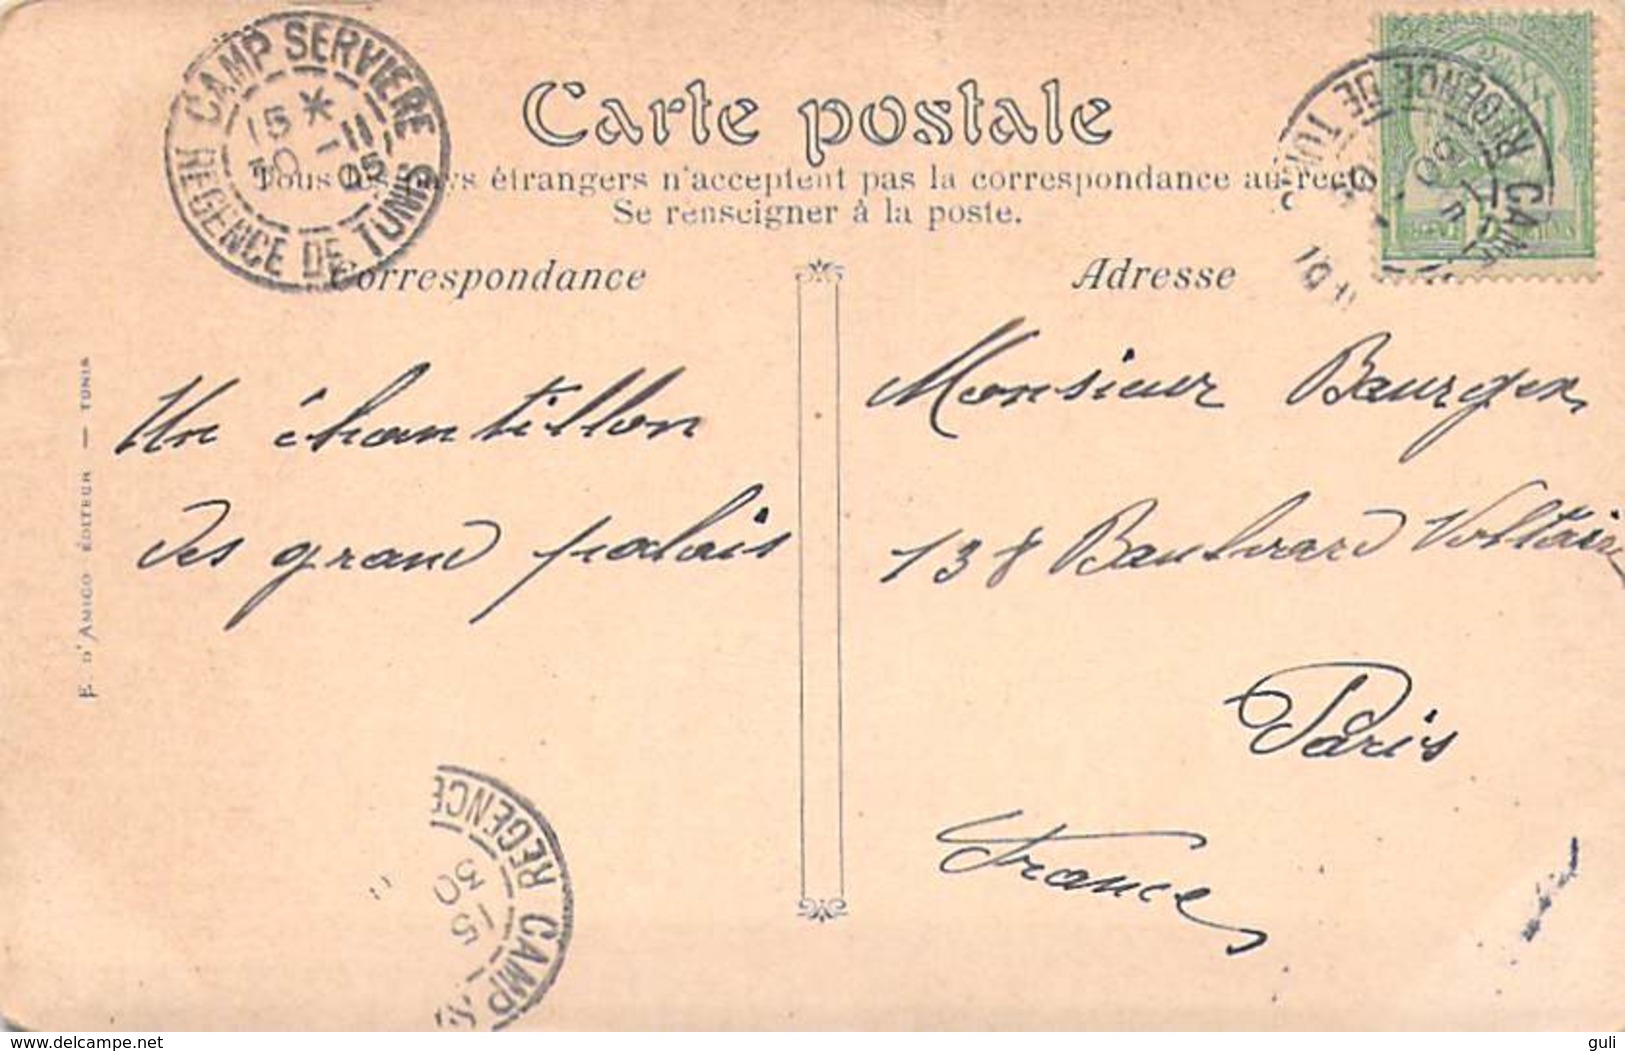 CAMP SERVIERE
15 * 11
30 -1 05
REGENCE DE TUNIS
Carte postale
Tous les pays étrangers n'acceptent pas la correspondance au recto
Se renseigner à la poste.
Correspondance
Adresse
Un échantillon
des grand palais
Monsieur Baurger
138 Boulevard Voltaire
Paris
France
E. D'AMICO ÉDITEUR — TUNIS
REGENCE
CAMP
15
30
REGENCE DE TUNIS
CAMP
delcampe.net
guli